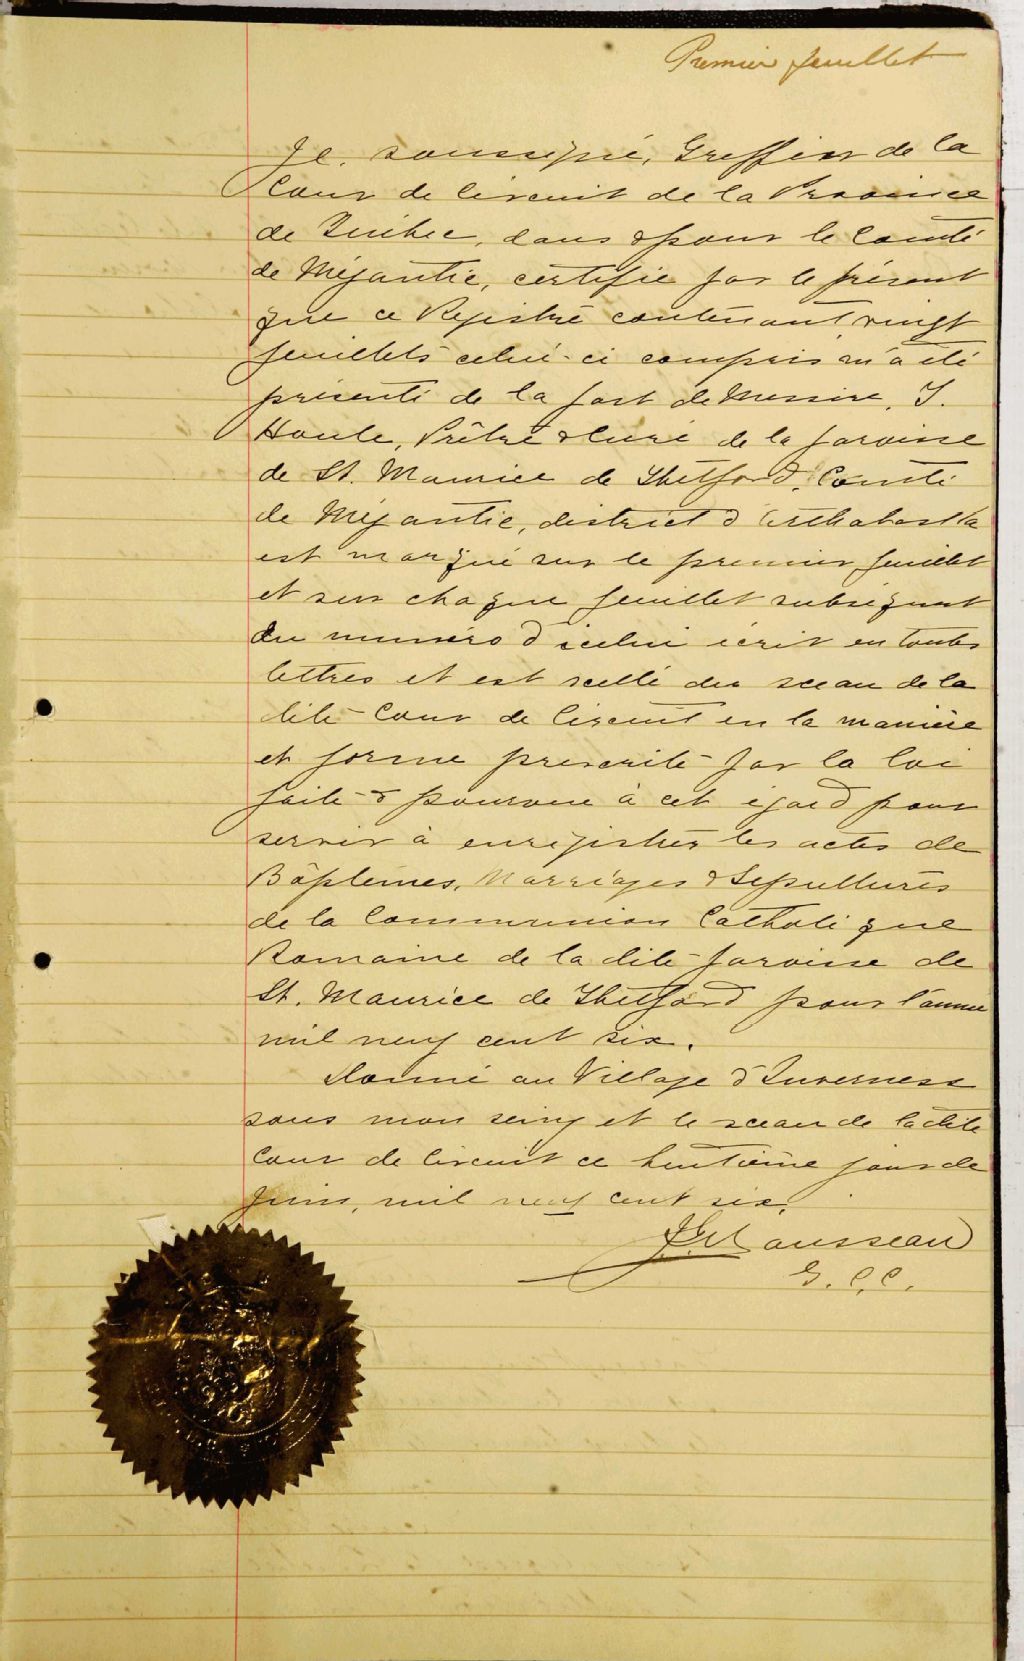 Premier feuillet
Je, soussigné, Greffier de la
Cour de Circuit de la Province
de Québec, dans & pour le Comté
de Mégantic, certifie par le présent
que ce Régistre contenant vingt
feuillets celui-ci compris m'a été
présenté de la part de Messire, J.
Houle, Prêtre & Curé de la paroisse
de St. Maurice de Thetford, Comté
de Mégantic, district d'Arthabaska
est marqué sur le premier feuillet
et sur chaque feuillet subséquent
du numéro d'icelui écrit en toutes
lettres et est scellé du sceau de la
dite Cour de Circuit en la manière
et forme prescrite par la loi
faite & pourvue à cet égard pour
servir à enregistrer les actes de
Bâptêmes, Marriages & Sépultures
de la Communion Catholique
Romaine de la dite paroisse de
St. Maurice de Thetford pour l'année
mil neuf cent six.
Donné au Village d'Inverness
sous mon seing et le sceau de la dite
Cour de Circuit ce huitième jour de
Juin, mil neuf cent six.
Rousseau
G. C. C.